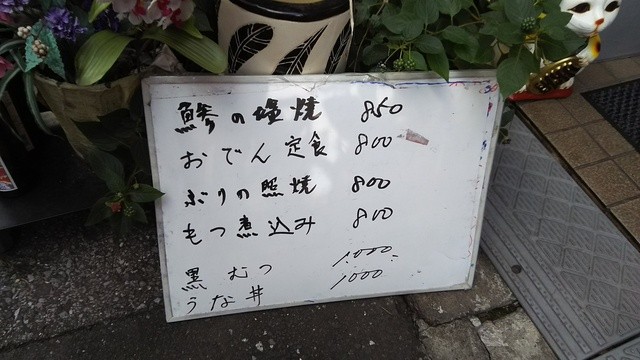 鯵の塩焼 850
おでん定食 800
ぶりの照焼 800
もつ煮込み 800
黒むつ 1.000.
うな丼 1000